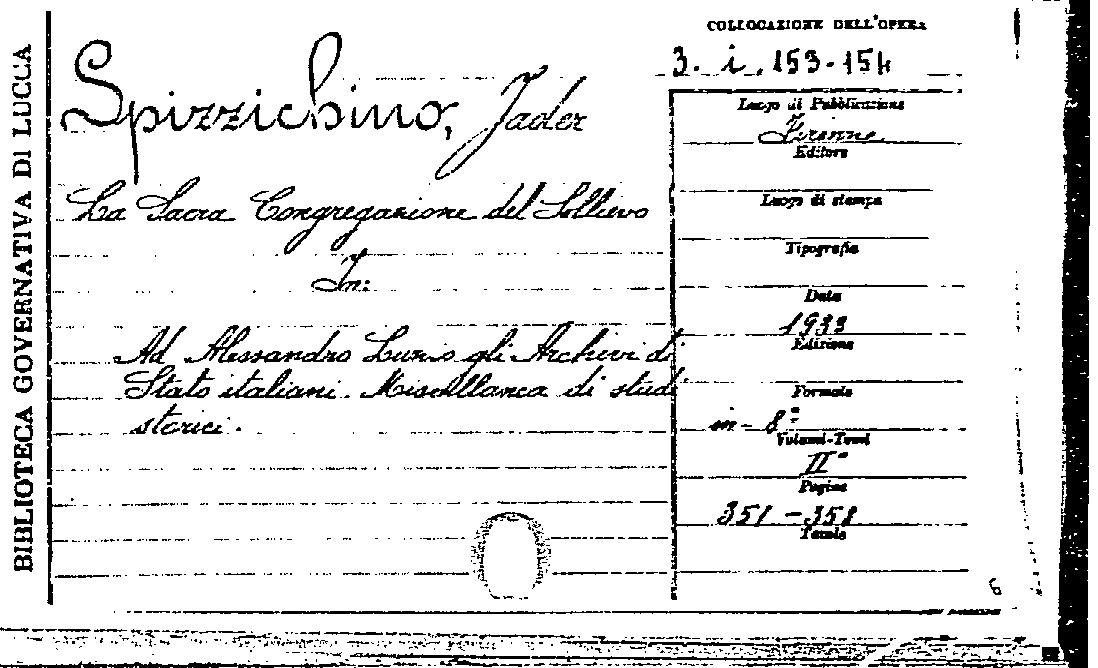 BIBLIOTECA GOVERNATIVA DI LUCCA
COLLOCAZIONE DELL'OPERA
3. i. 153-154
Spizzichino, Jader
La Sacra Congregazione del Sollievo
In:
Ad Alessandro Luzio gli Archivi di
Stato italiani. Miscellanea di studi
storici.
Luogo di Pubblicazione
Firenze
Editore
Luogo di stampa
Tipografia
Data
1933
Edizione
Formato
in-8°
Volumi-Tomi
II°
Pagine
351-358
Tavole
6